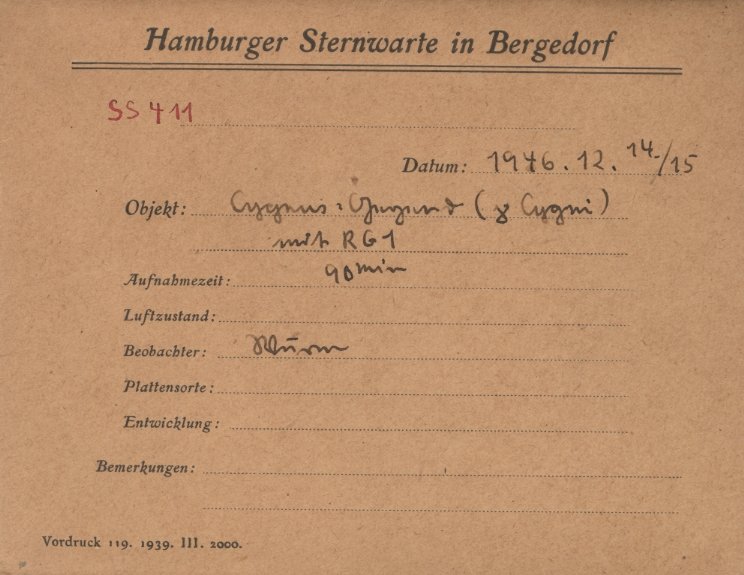 Hamburger Sternwarte in Bergedorf
SS 411
Datum: 1946.12.14./15
Objekt: Cygnus-Gegend (γ Cygni)
mit RG1
Aufnahmezeit: 90 min
Luftzustand:
Beobachter: Wurm
Plattensorte:
Entwicklung:
Bemerkungen:
Vordruck 119. 1939. III. 2000.